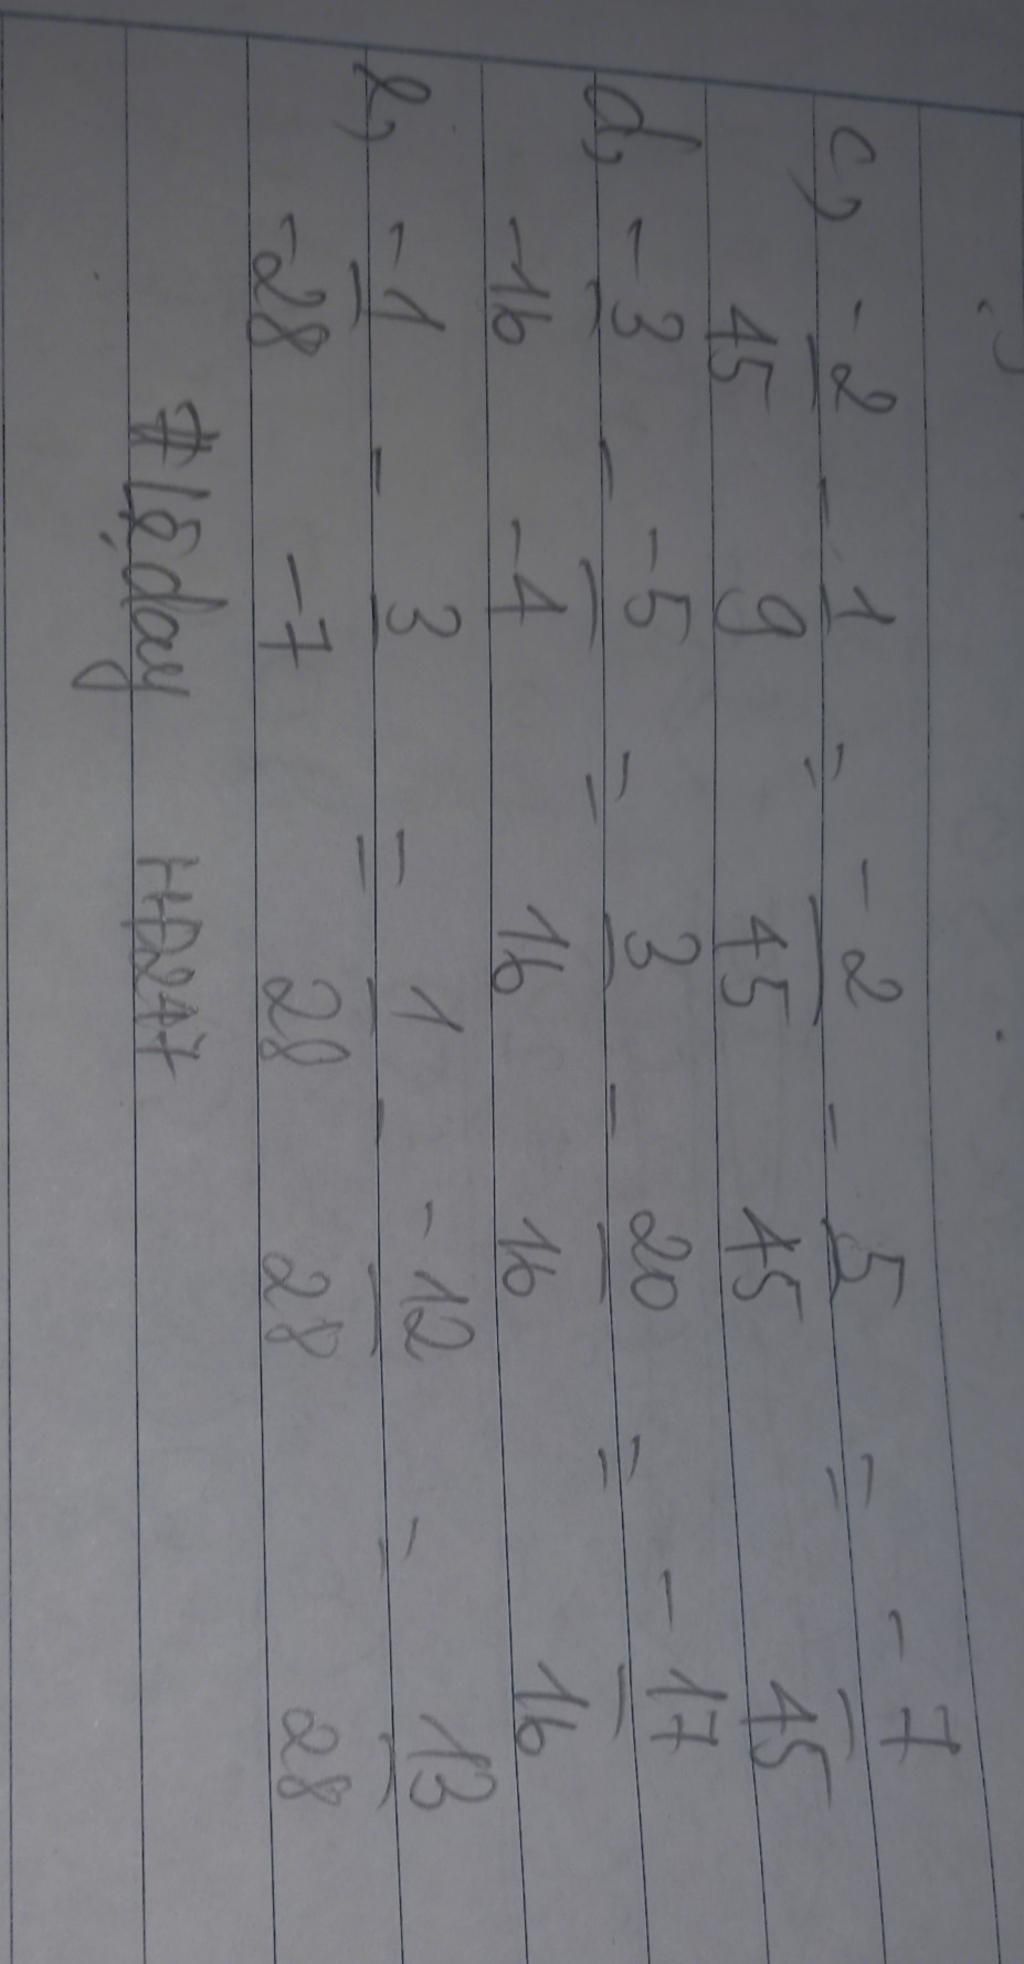 c, -2/45 - 1/9 = -2/45 - 5/45 = -7/45
d, -3/-16 - -5/-4 = 3/16 - 20/16 = -17/16
e, -1/-28 - 3/-7 = 1/28 - -12/28 = 13/28
#lẹday HD247